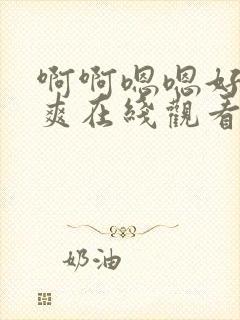 啊啊嗯嗯好
爽在綫觀看
奶油